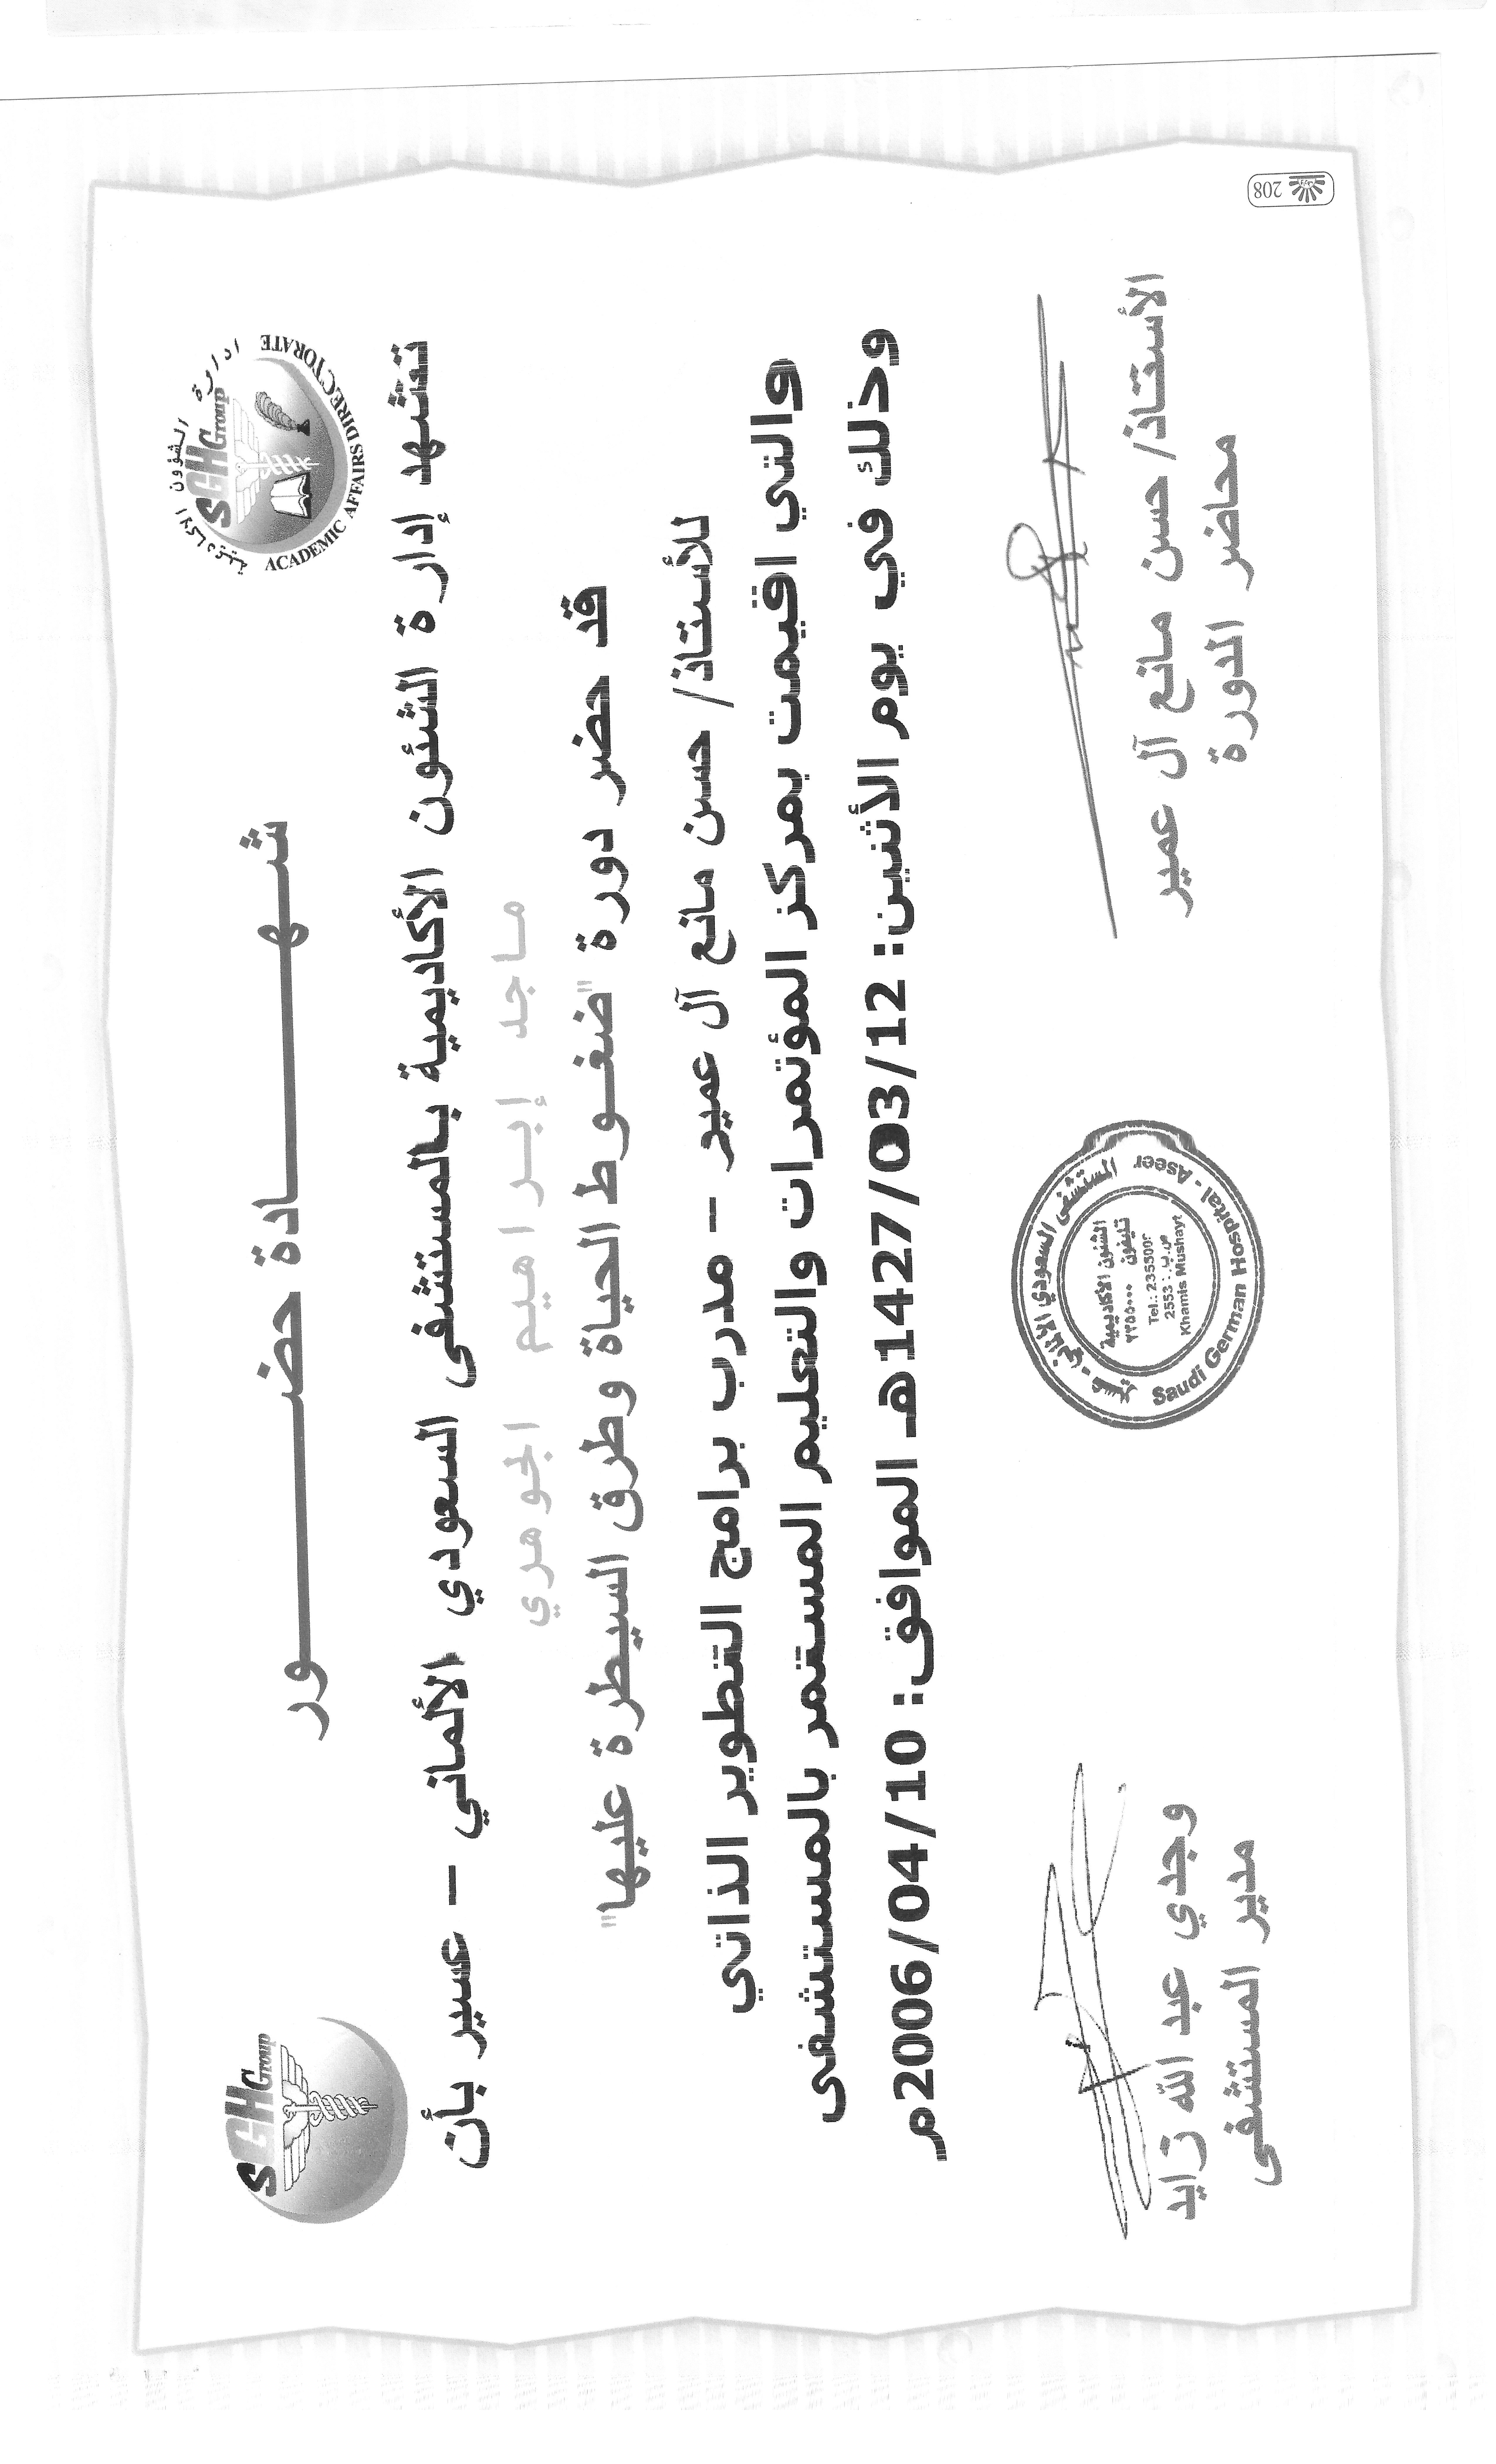 SGH Group
ادارة الشؤون الاكاديمية
SGH Group
ACADEMIC AFFAIRS DIRECTORATE
شهادة حضور
تشهد إدارة الشئون الأكاديمية بالمستشفى السعودي الألماني - عسير بأن
ماجد إبراهيم الجوهري
قد حضر دورة "ضغوط الحياة وطرق السيطرة عليها"
للأستاذ/ حسن مانع آل عمير - مدرب برامج التطوير الذاتي
والتي اقيمت بمركز المؤتمرات والتعليم المستمر بالمستشفى
وذلك في يوم الأثنين: 1427/03/12هـ الموافق: 2006/04/10م
الأستاذ/ حسن مانع آل عمير
محاضر الدورة
المستشفى السعودي الالماني - عسير
الشئون الاكاديمية
تليفون ٢٣٥٥٠٠٠
Tel.: 235500
ص.ب.: 2553
Khamis Mushayt
Saudi German Hospital - Aseer
وجدي عبد الله زايد
مدير المستشفى
208